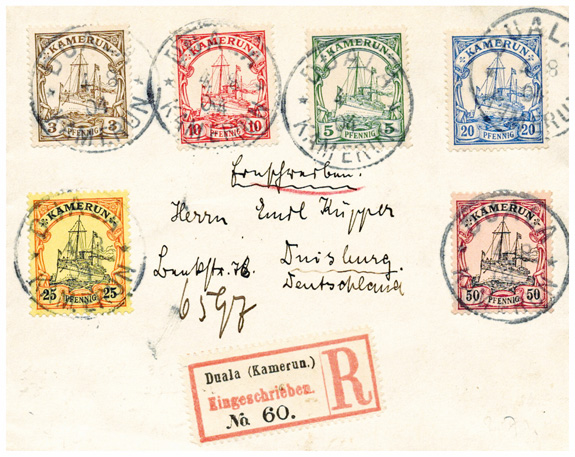 KAMERUN
3 PFENNIG 3
KAMERUN
10 PFENNIG 10
KAMERUN
5 PFENNIG 5
KAMERUN
20 PFENNIG 20
DUALA
KAMERUN
Einschreiben.
Herrn Emil Küpper
Duisburg.
Deutschland
KAMERUN
25 PFENNIG 25
KAMERUN
50 PFENNIG 50
Duala (Kamerun.)
Eingeschrieben.
No 60.
R